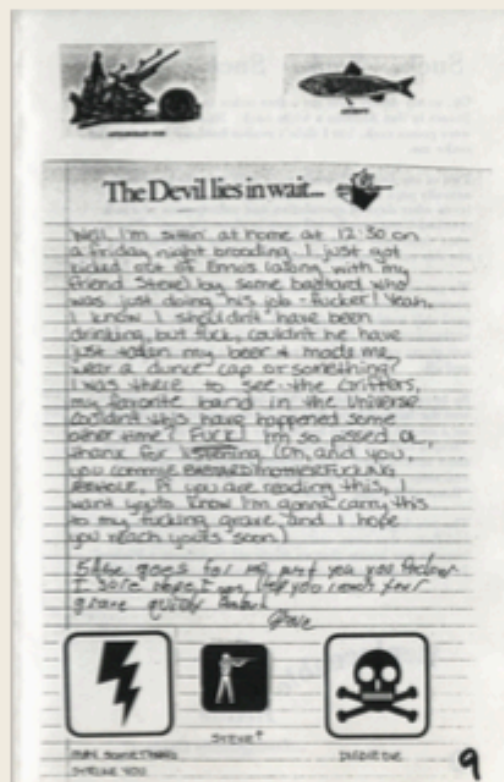 The Devil lies in wait...
Well I'm sittin' at home at 12:30 on
a friday night brooding. I just got
kicked out of Emos (along with my
friend Steve) by some bastard who
was just doing his job - fucker! Yeah,
I know I shouldn't have been
drinking, but fuck, couldn't he have
just taken my beer & made me
wear a dunce cap or something?
I was there to see the Grifters,
my favorite band in the Universe
Couldn't this have happened some
other time? FUCK! I'm so pissed
thanx for listening (Oh, and you,
you commie BASTARD MOTHERFUCKING
ASSHOLE, if you are reading this, I
want you to know I'm gonna carry this
to my fucking grave and I hope
you reach yours soon.)
goes for me you you
I sure hope I you reach
grave
STEVE↑
MAY SOMETHING
STRIKE YOU
DIE DIE DIE
9